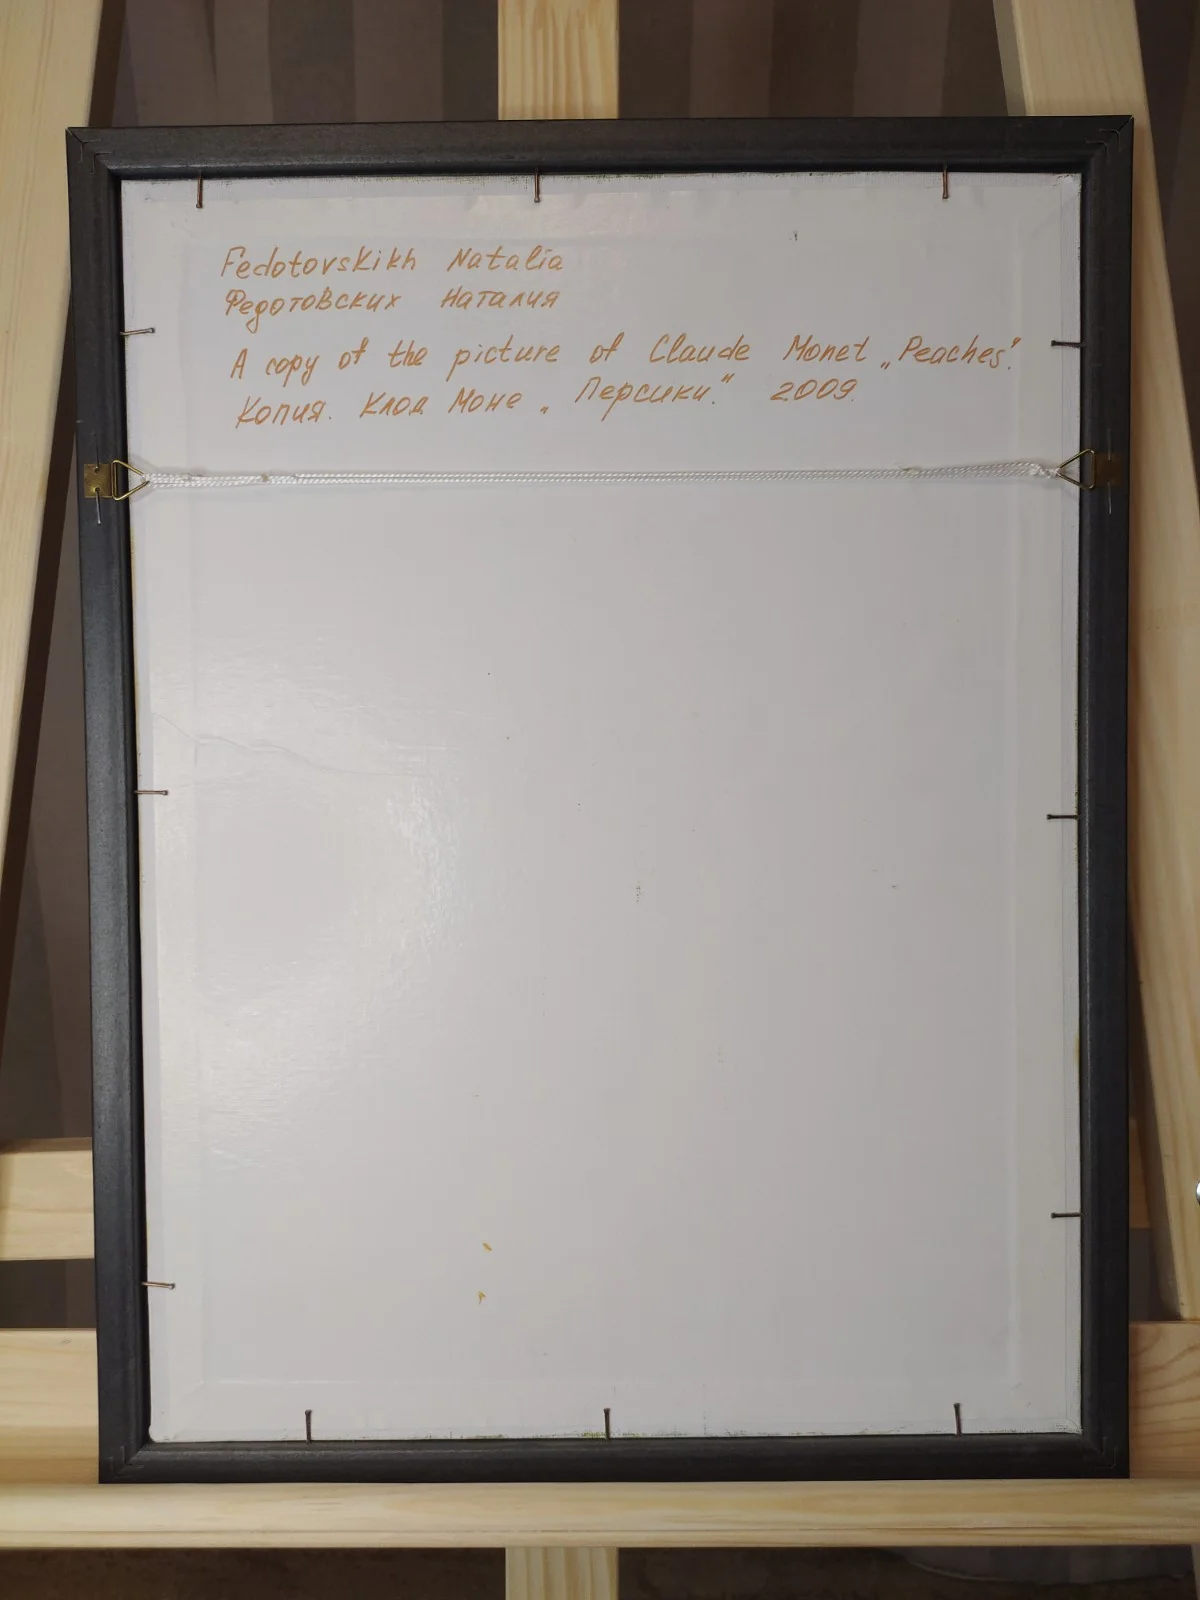 Fedotovskikh Natalia
Федотовских Наталия
A copy of the picture of Claude Monet „Peaches".
Копия. Клод Моне „Персики". 2009.